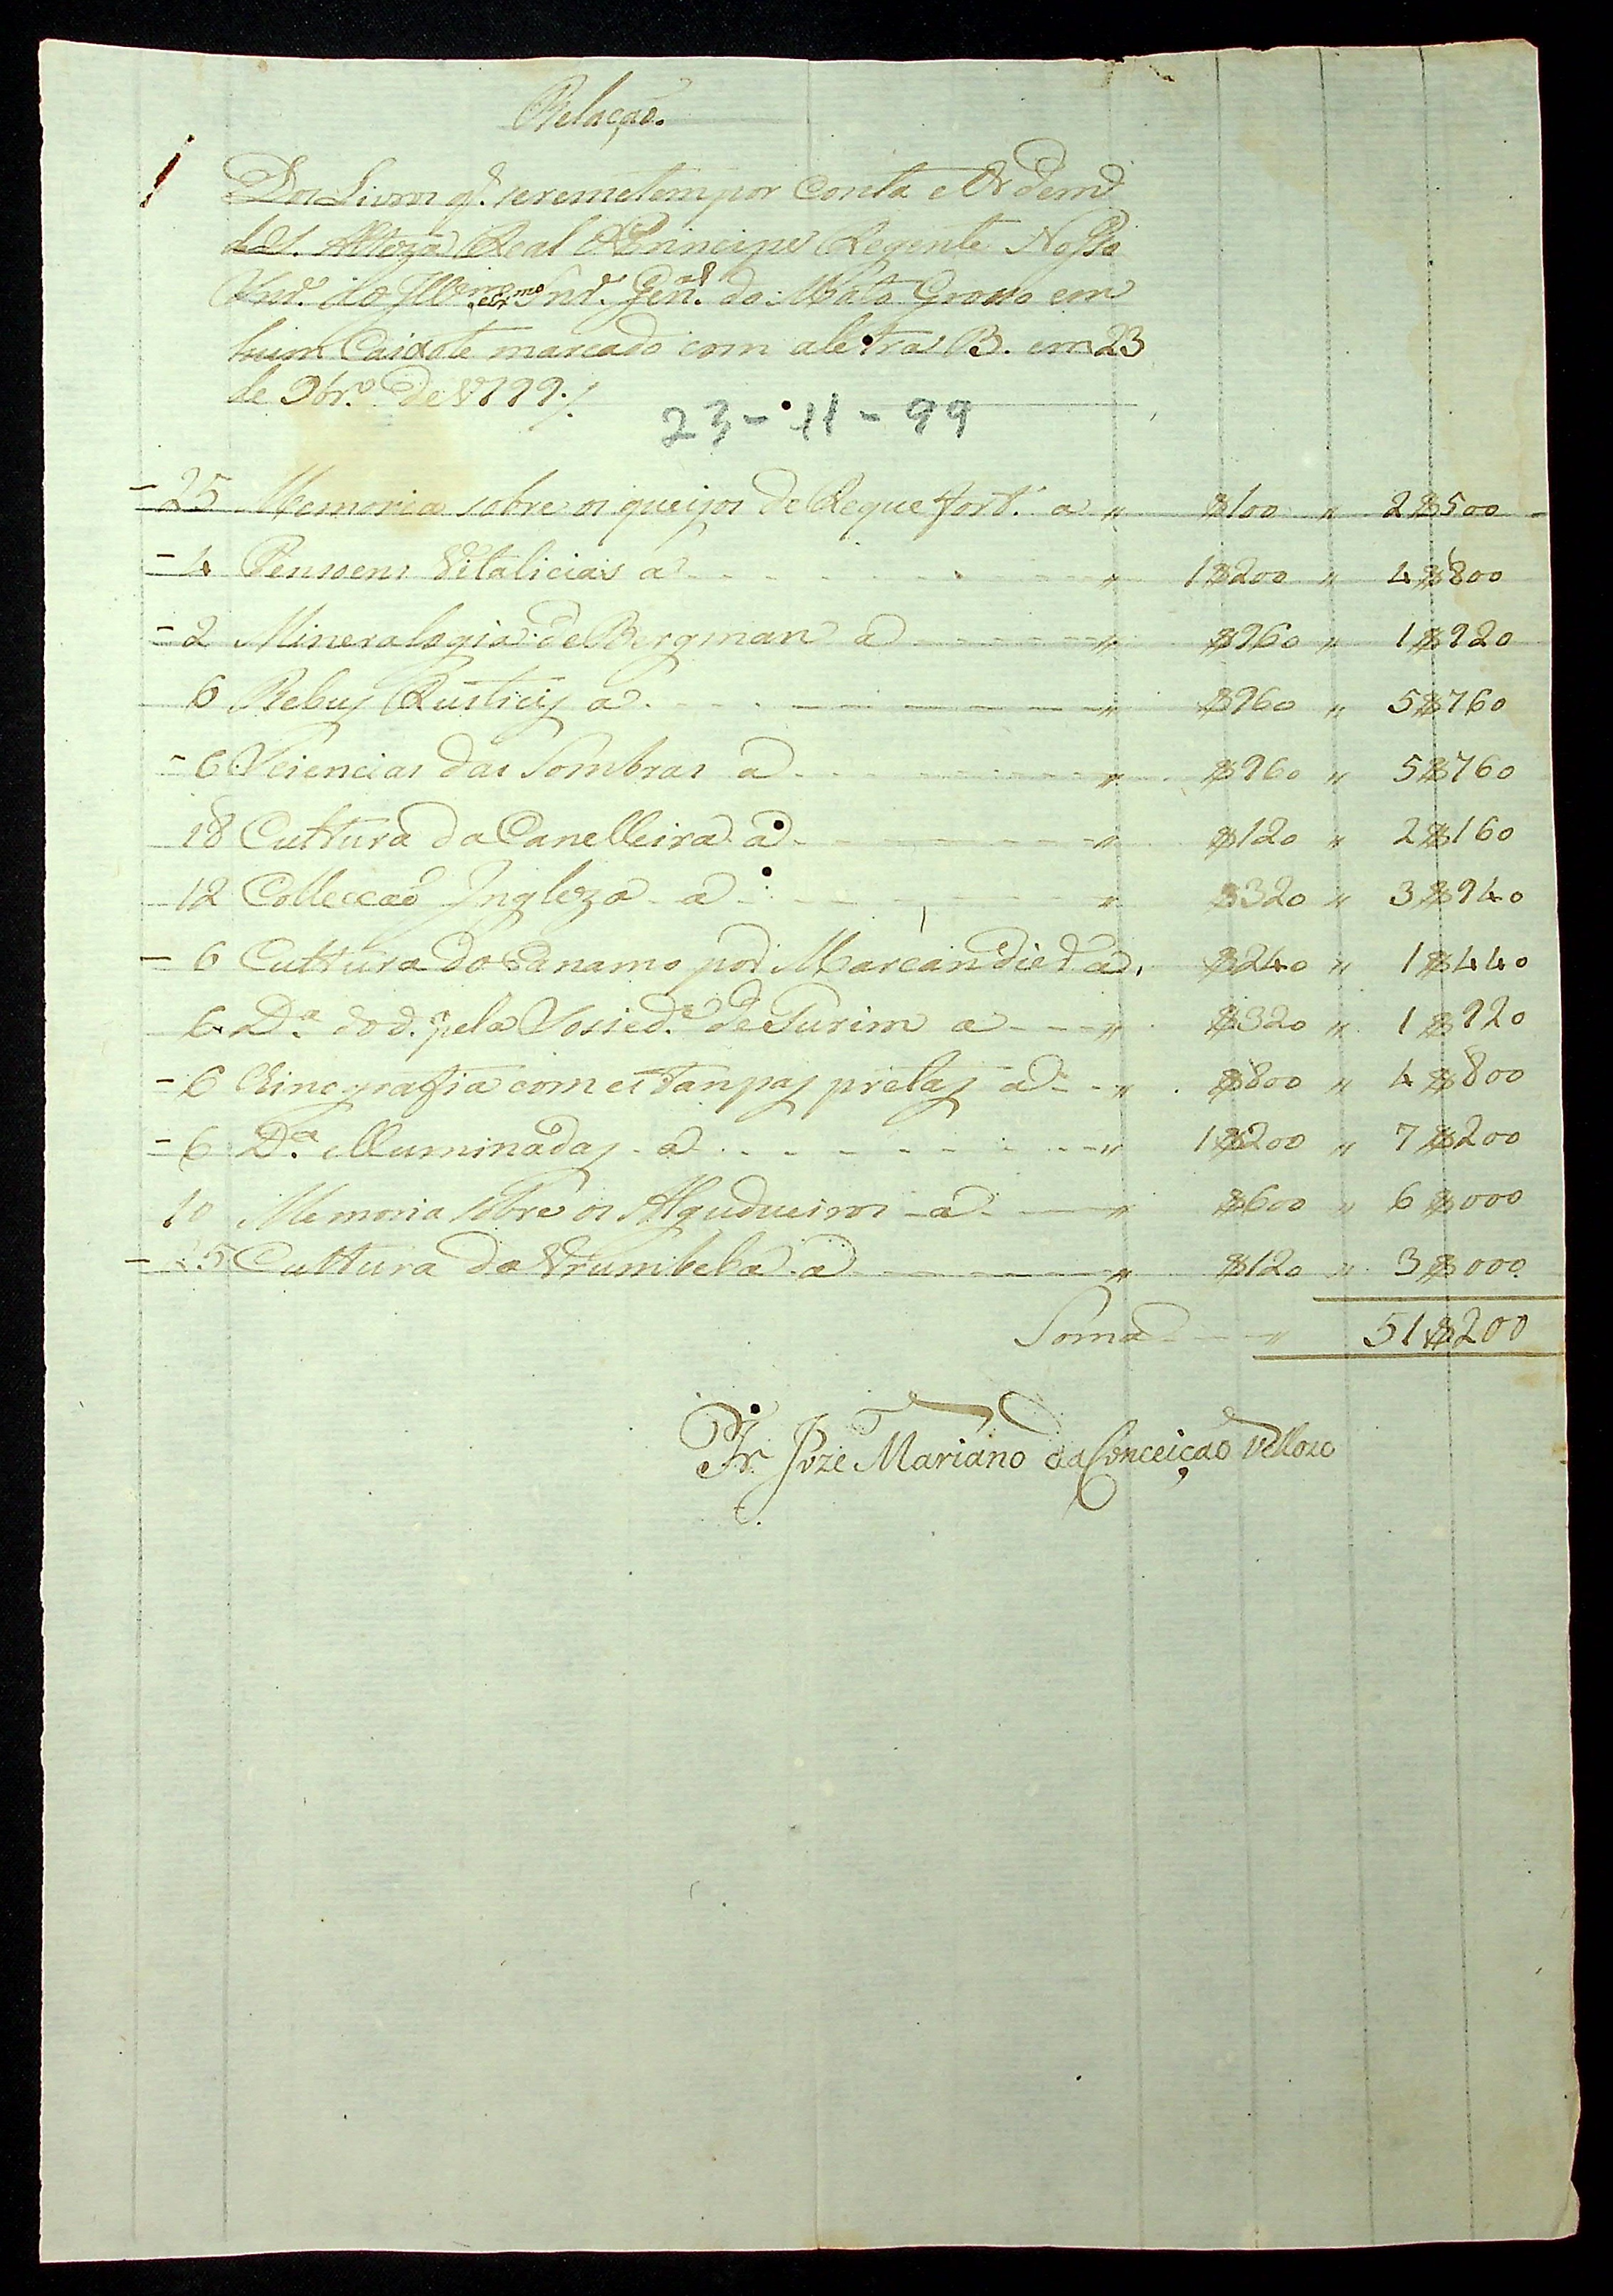 Relação.
Dos Livros q̃. se remetem por Conta e Ordem
de S. Alteza Real O Principe Regente Nosso
Snr̃. ao Illmo. exmo Snr̃. Genal. do Mato Grosso em
hum Caixote marcado com a letra B. em 23
de 9brº. de 1799./
23-11-99
- 25 Memoria sobre os queijos de Roquefort. a " $100 " 2$500
- 4 Pensoens Vitalicias a " 1$200 " 4$800
- 2 Mineralogia de Bergman a " $960 " 1$920
6 Rebus Rusticis a " $960 " 5$760
- 6 Sciencias das Sombras a " $960 " 5$760
18 Cultura da Canelleira a " $120 " 2$160
12 Collecçaõ Ingleza a " $320 " 3$940
- 6 Cultura do Canamo por Marcandier a, $240 " 1$440
6 Dª. do d. pela Sosiedᵉ. de Turim a " $320 " 1$920
- 6 Quinografia com estanpas pretas a " $800 " 4$800
- 6 Dª. illuminadas a " 1$200 " 7$200
10 Memoria sobre os Algudueiros a " $600 " 6$000
- 25 Cultura da Urumbeba a " $120 " 3$000
Soma " 51$200
Fr. Joze Mariano da Conceiçaõ Vellozo